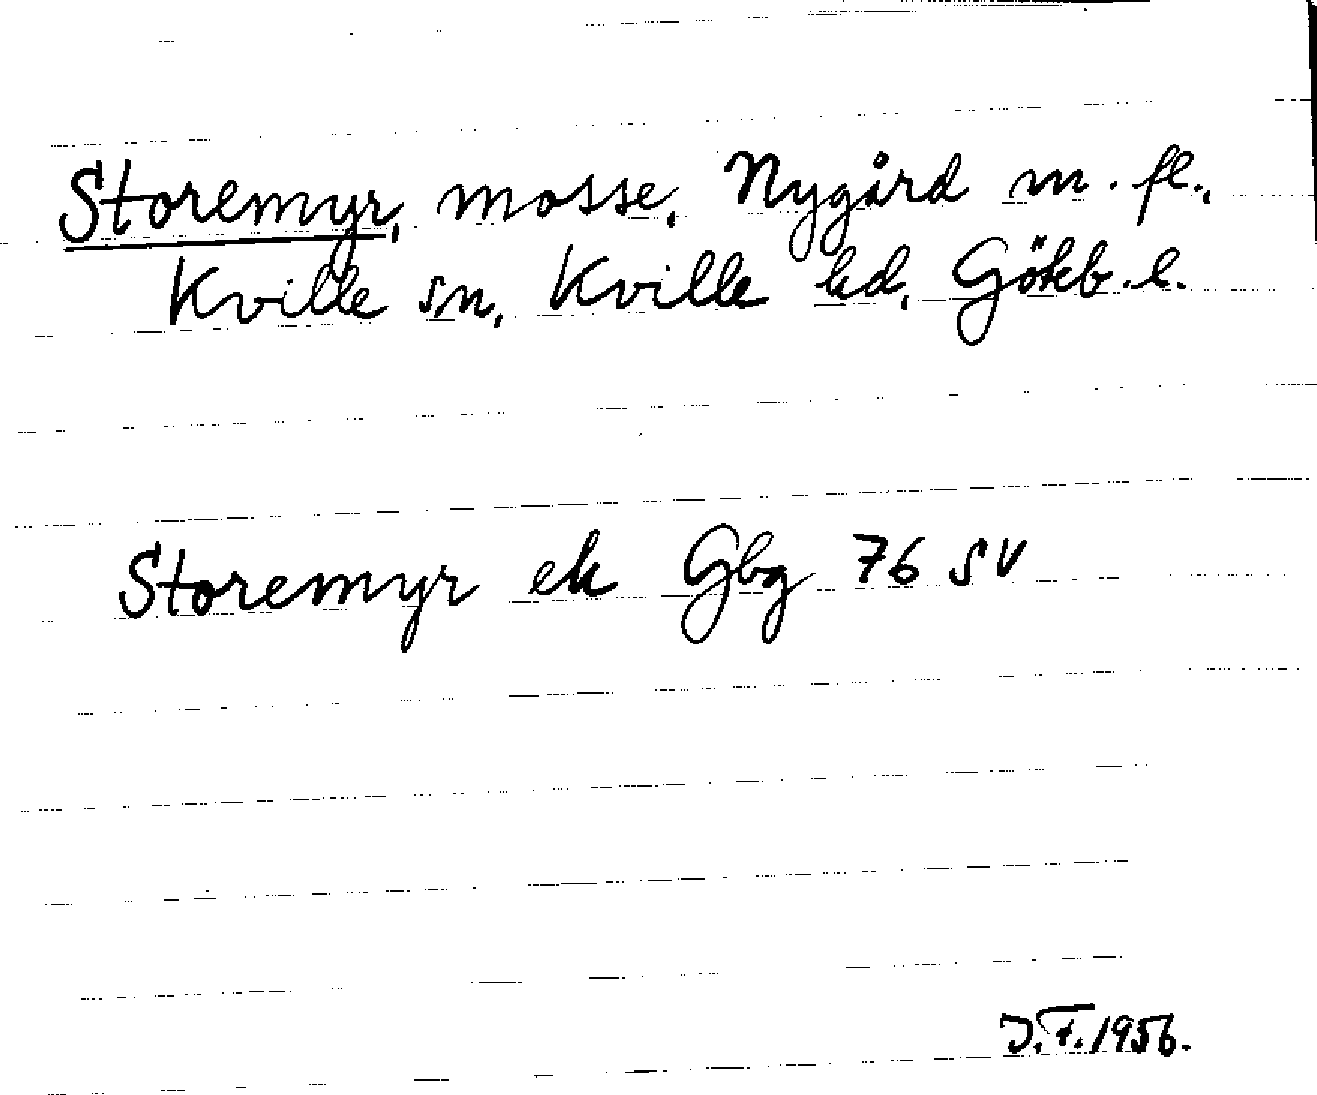 Storemyr, mosse, Nygård m. fl.,
Kville sn, Kville hd, Götb. l.
Storemyr ek Gbg 76 SV
J.F. 1956.